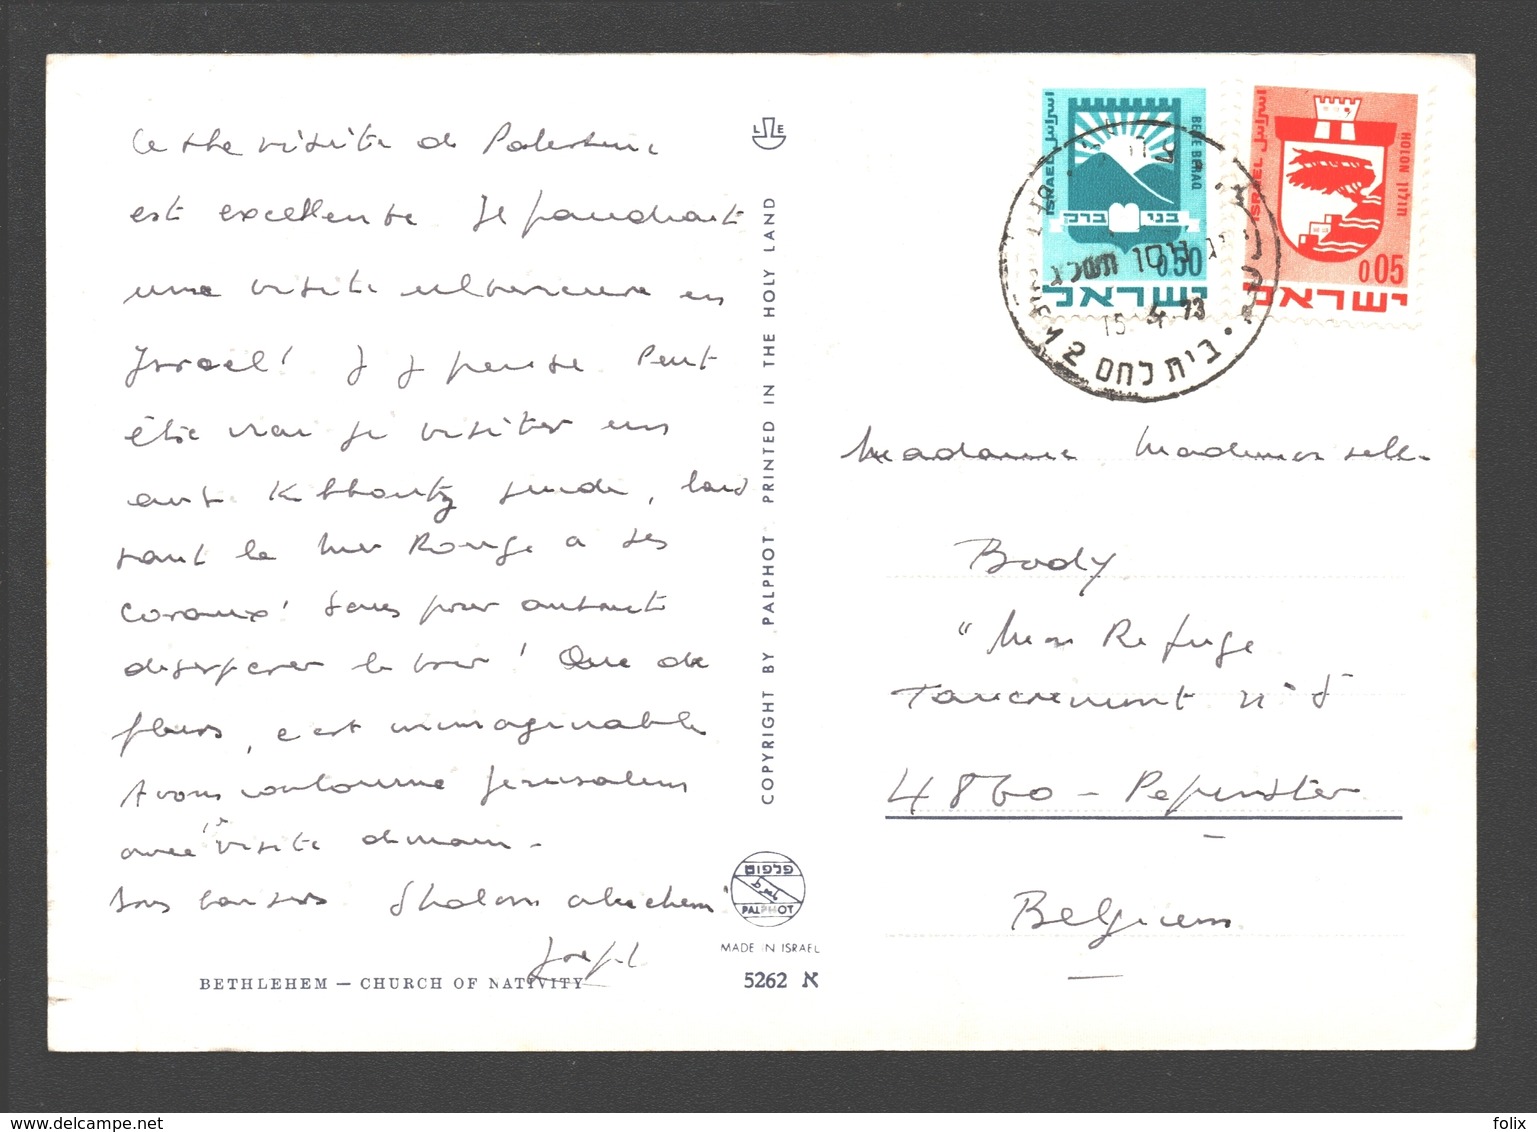 visite de Palestine
est excellente Je
une visite ultérieure en
Israel! J y pense Peut
être vais je visiter un
Kibboutz
la Mer Rouge a ses
coraux! Sans pour autant
desesperer le
! Que de
fleurs, c est inimaginable
Avons contourné Jerusalem
avec visite demain -
Bons baisers Shalom alechem
Joseph
BETHLEHEM — CHURCH OF NATIVITY
COPYRIGHT BY PALPHOT PRINTED IN THE HOLY LAND
L E
פלפוט
PALPHOT
MADE IN ISRAEL
5262 א
اسرائيل ISRAEL
BENE BERAQ
בני ברק
0.50
ישראל
اسرائيل ISRAEL
HOLON חולון
0.05
ישראל
15 4 73
בית לחם 2
Madame Mademoiselle
Body
"Mon Refuge
Tancremont n° 5
4860 - Pepinster
Belgium
felix
www.delcampe.net